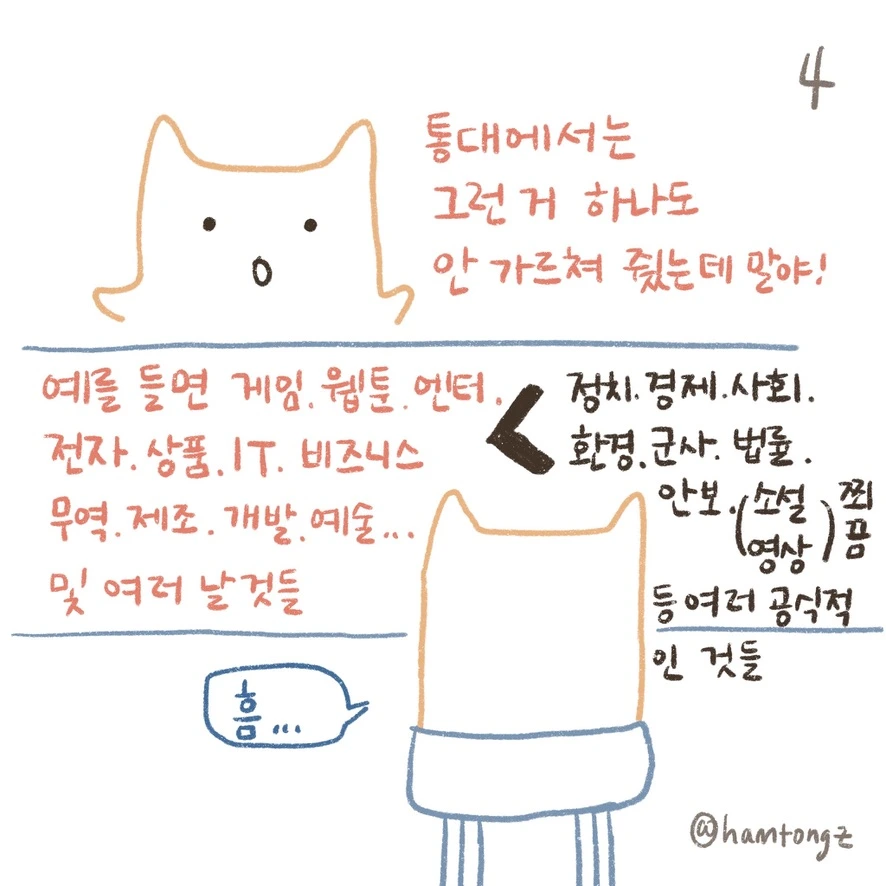 4
통대에서는
그런 거 하나도
안 가르쳐 줬는데 말야!
예를 들면 게임.웹툰.엔터.
전자.상품.IT. 비즈니스
무역.제조.개발.예술...
및 여러 날것들
<
정치.경제.사회.
환경.군사.법률.
안보.(소설 영상) 쬐끔
등 여러 공식적
인 것들
흠...
@hamtongz